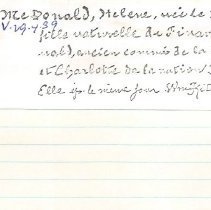 McDonald, Helene, née le
V-29-439
fille naturelle de
nald, ancien commis de la
et Charlotte de la nation
Elle  le même jour